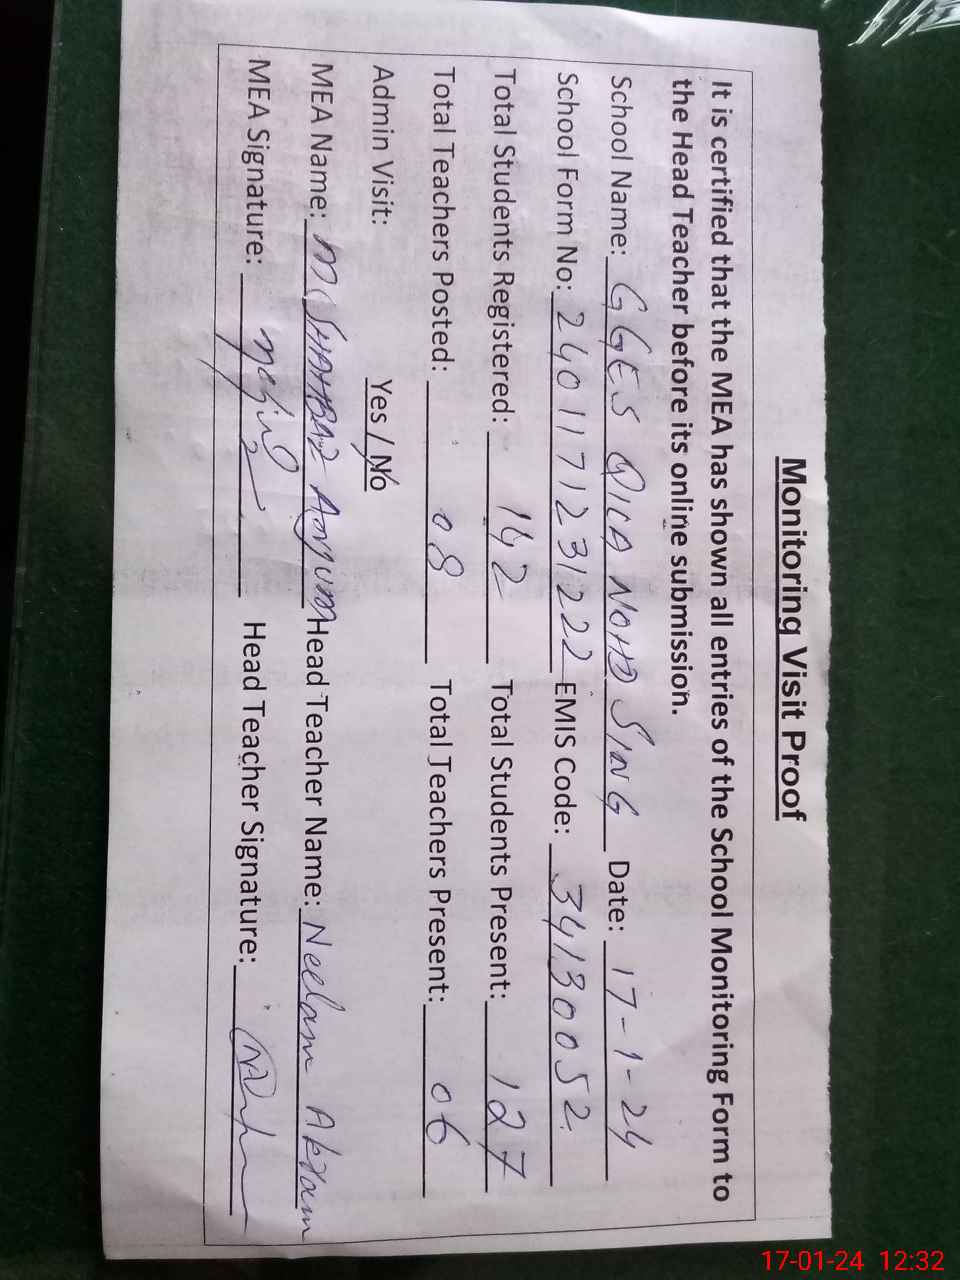 Monitoring Visit Proof
It is certified that the MEA has shown all entries of the School Monitoring Form to
the Head Teacher before its online submission.
School Name: GGES QILA NOHD SING Date: 17-1-24
School Form No: 2401171231222 EMIS Code: 34130052
Total Students Registered: 142 Total Students Present: 127
Total Teachers Posted: 08 Total Teachers Present: 06
Admin Visit: Yes / No
MEA Name: M SHAHBAZ Anjum Head Teacher Name: Neelam Akram
MEA Signature: Head Teacher Signature:
17-01-24 12:32